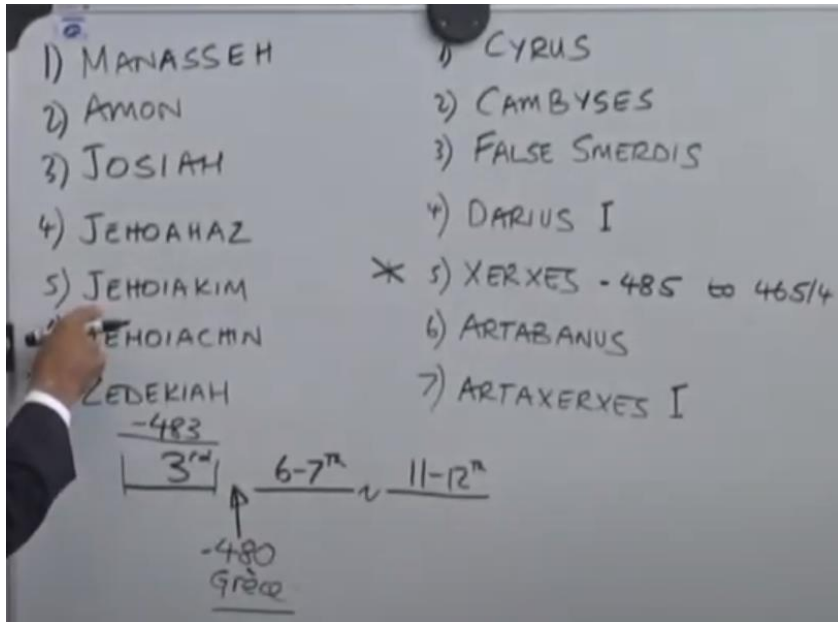 1) MANASSEH
2) AMON
3) JOSIAH
4) JEHOAHAZ
5) JEHOIAKIM
JEHOIACHIN
ZEDEKIAH
1) CYRUS
2) CAMBYSES
3) FALSE SMERDIS
4) DARIUS I
* 5) XERXES - 485 to 465/4
6) ARTABANUS
7) ARTAXERXES I
-483
3rd 6-7th ~ 11-12th
-480
Grèce